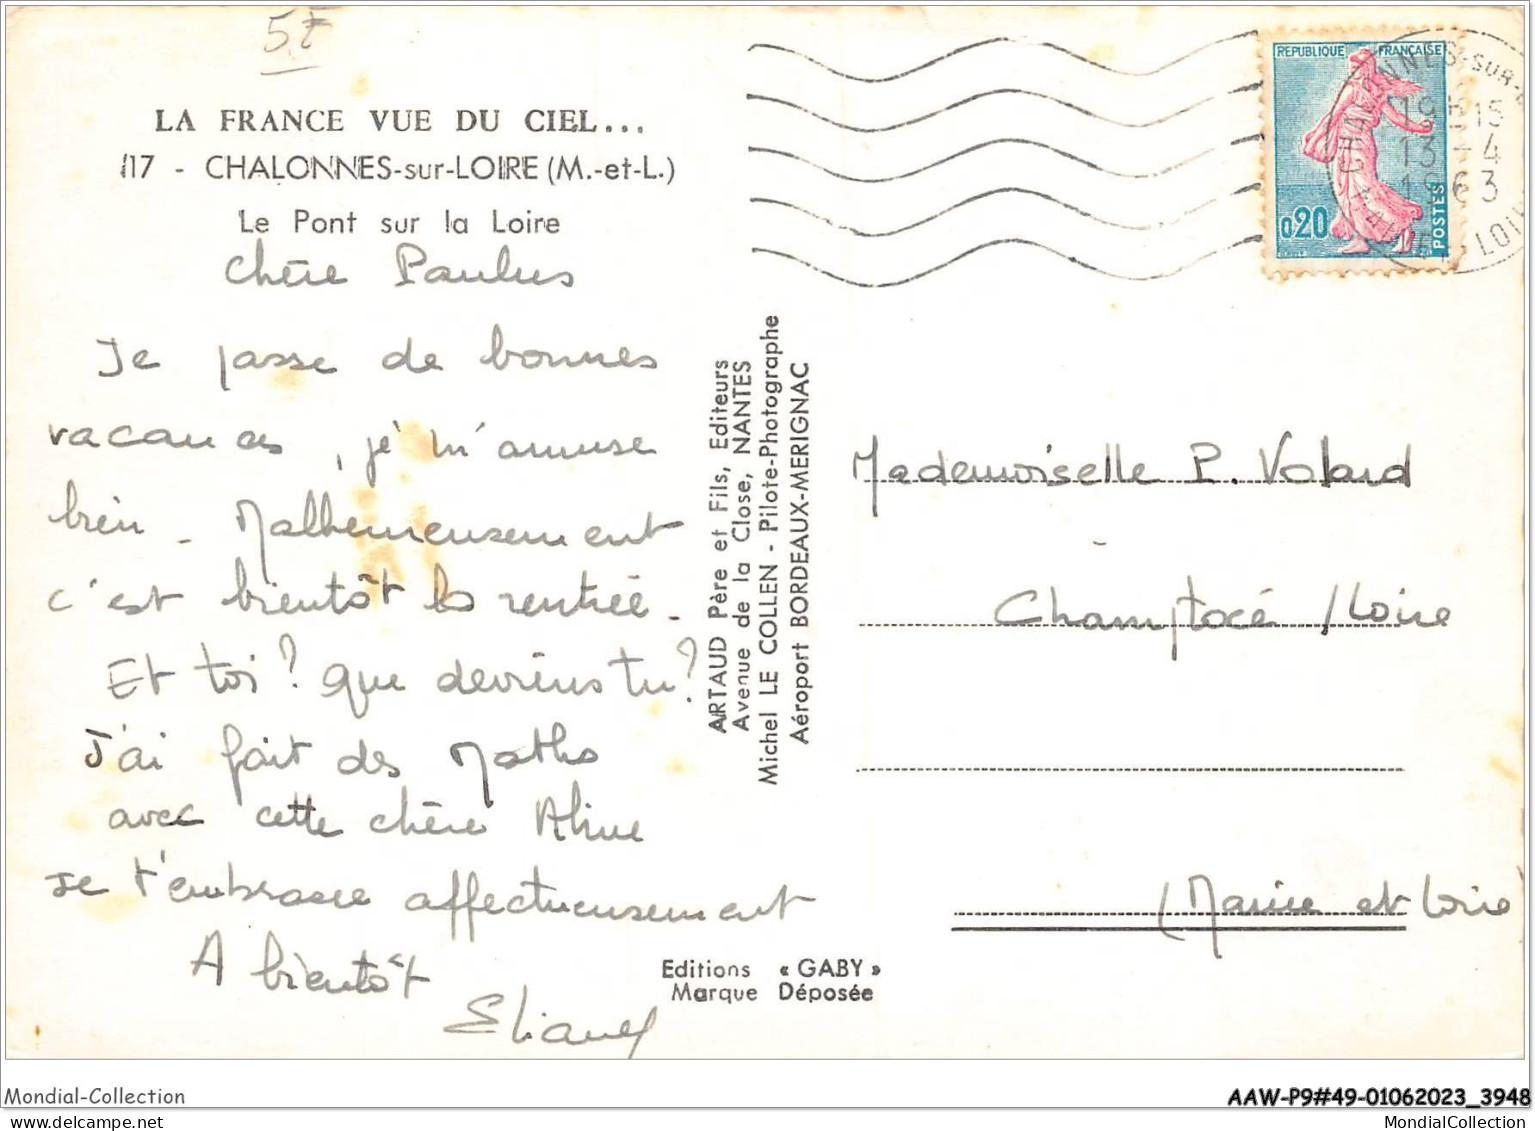 5F
LA FRANCE VUE DU CIEL...
117 - CHALONNES-sur-LOIRE (M.-et-L.)
Le Pont sur la Loire
Chère Paulus
Je passe de bonnes
vacances, je m'amuse
bien - Malheureusement
c'est bientôt la rentrée -
Et toi? que deviens tu?
J'ai fait des Maths
avec cette chère Aline
Je t'embrasse affectueusement
A bientôt
Eliane
ARTAUD Père et Fils, Editeurs
Avenue de la Close, NANTES
Michel LE COLLEN - Pilote-Photographe
Aéroport BORDEAUX-MERIGNAC
Editions « GABY »
Marque Déposée
REPUBLIQUE FRANÇAISE
0,20
POSTES
CHALONNES-SUR-L
19H15
13-4
1963
LOIR
Mademoiselle P. Volard
Champtocé /Loire
(Maine et Loire)
Mondial-Collection
AAW-P9#49-01062023_3948
MondialCollection